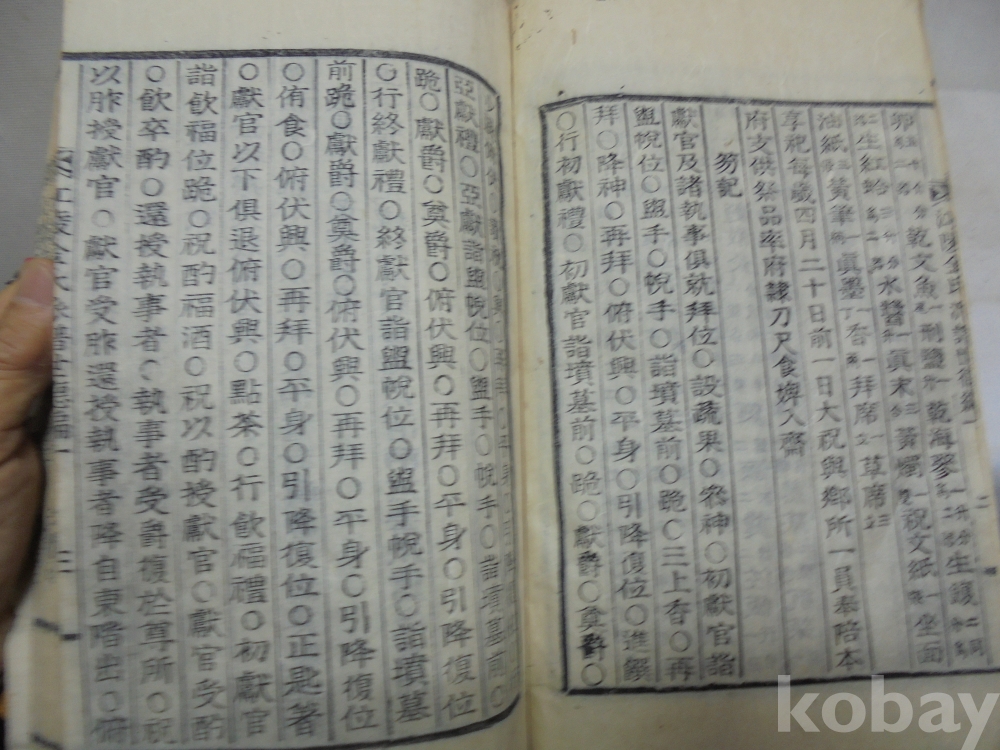 生紅蛤 水醬 眞末 黃燭 祝文紙 坐面
油紙 黃筆 眞墨 香 拜席 草席
享祀每歲四月二十日前一日大祝與鄕所一員奉陪本
府支供祭品率府隷刀尺食婢入齋
笏記
獻官及諸執事俱就拜位○設蔬果○叅神○初獻官詣
盥帨位○盥手○帨手○詣墳墓前○跪○三上香○再
拜○降神○再拜○俯伏興○平身○引降復位○進饌
○行初獻禮○初獻官詣墳墓前○跪○獻爵○奠爵○
亞獻禮○亞獻詣盥帨位○盥手○帨手○詣墳墓前○
跪○獻爵○奠爵○俯伏興○再拜○平身○引降復位
○行終獻禮○終獻官詣盥帨位○盥手帨手○詣墳墓
前跪○獻爵○奠爵○俯伏興○再拜○平身○引降復位
○侑食○俯伏興○再拜○平身○引降復位○正匙著
○獻官以下俱退俯伏興○點茶○行飮福禮○初獻官
詣飮福位跪○祝酌福酒○祝以酌授獻官○獻官受酌
○飮卒酌○還授執事者○執事者受爵復於尊所○祝
以胙授獻官○獻官受胙還授執事者降自東階出○俯
三
kobay